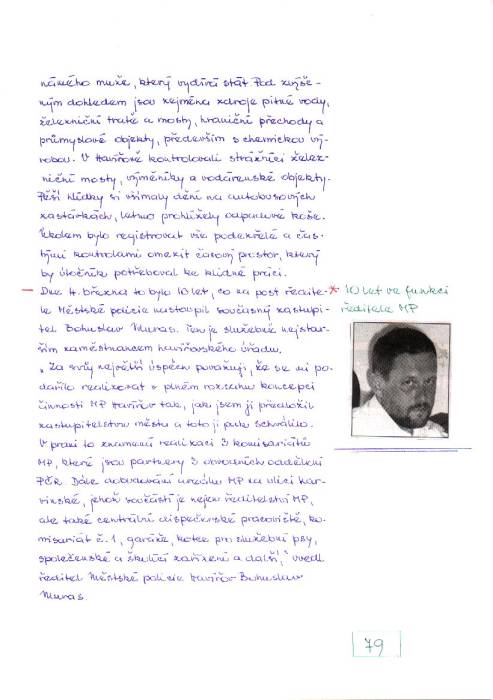 námého muže, který vydírá stát. Pod zvýše-
ným dohledem jsou zejména zdroje pitné vody,
železniční tratě a mosty, hraniční přechody a
průmyslové objekty, především s chemickou vý-
robou. V Havířově kontrolovali strážníci želez-
niční mosty, výměníky a vodárenské objekty.
Pěší hlídky si všímaly dění na autobusových
zastávkách, letmo prohlížely odpadkové koše.
Úkolem bylo registrovat vše podezřelé a čas-
tými kontrolami omezit časový prostor, který
by útočník potřeboval ke klidné práci.
– Dne 4. března to bylo 10 let, co na post ředite-
le Městské policie nastoupil současný zastupi-
tel Bohuslav Muras. Ten je služebně nejstar-
ším zaměstnancem havířovského úřadu.
„Za svůj největší úspěch považuji, že se mi po-
dařilo realizovat v plném rozsahu koncepci
činnosti MP Havířov tak, jak jsem ji předložil
zastupitelstvu města a toto ji pak schválilo.
V praxi to znamená realizaci 3 komisariátů
MP, které jsou partnery 3 obvodních oddělení
PČR. Dále dobudování areálu MP na ulici Kar-
vinské, jehož součástí je nejen ředitelství MP,
ale také centrální dispečerské pracoviště, ko-
misariát č. 1, garáže, kotce pro služební psy,
společenské a školící zařízení a další,“ uvedl
ředitel Městské policie Havířov Bohuslav
Muras.
* 10 let ve funkci
ředitele MP
79